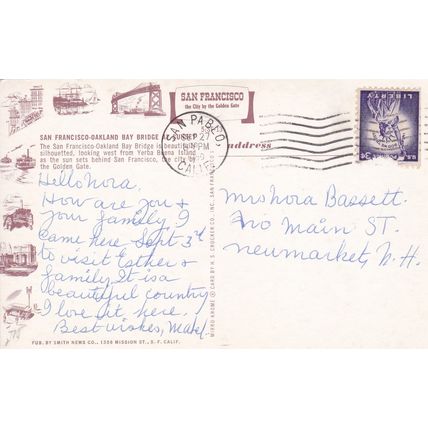 SAN FRANCISCO
the City by the Golden Gate
SAN FRANCISCO-OAKLAND BAY BRIDGE AT SUNSET
The San Francisco-Oakland Bay Bridge is beautifully
silhouetted, looking west from Yerba Buena Island
as the sun sets behind San Francisco, the city by
the Golden Gate.
Hello Nora.
How are you &
your family, I
came here Sept 3d
to visit Esther &
family. It is a
beautiful country
I love it here.
Best wishes, Mabel.
PUB. BY SMITH NEWS CO., 1350 MISSION ST., S. F. CALIF.
MIRRO KROME ® CARD BY H. S. CROCKER CO. INC., SAN FRANCISCO
SAN PABLO,
SEP 27
PM
CALIF.
address
U.S.
LIBERTY
3¢
Mrs Nora Bassett.
210 Main ST.
Newmarket, N. H.